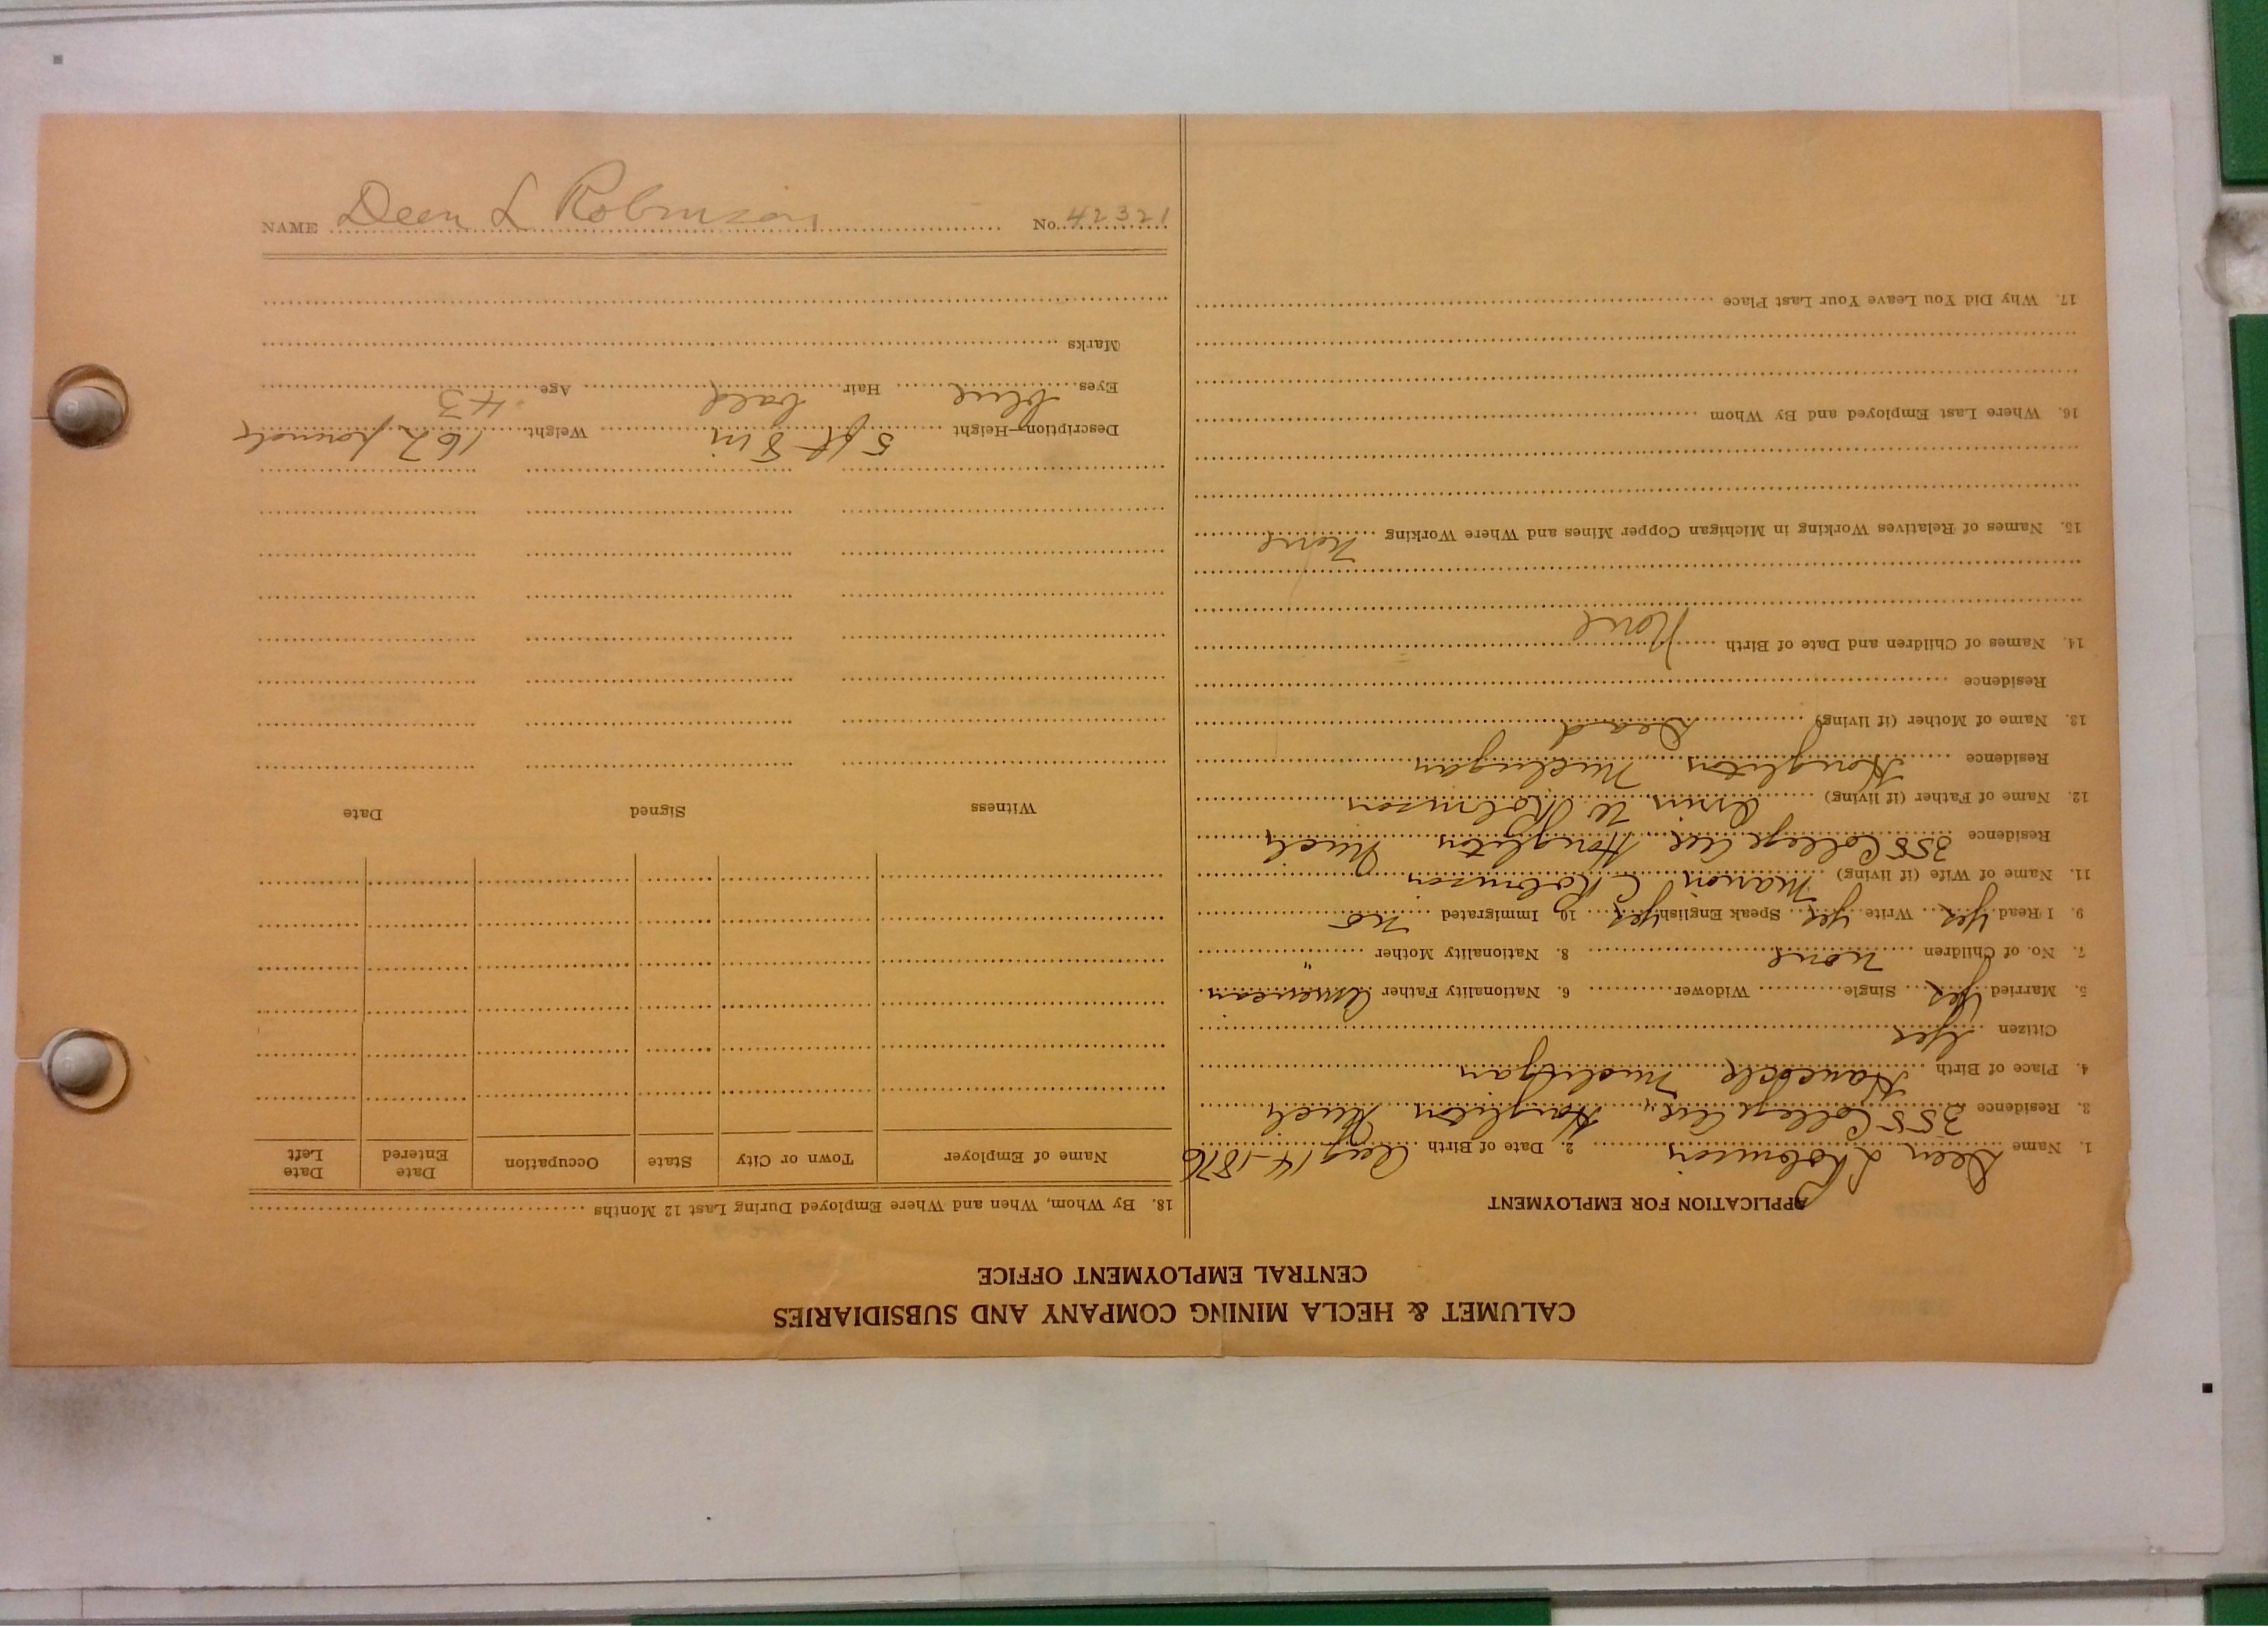 CALUMET & HECLA MINING COMPANY AND SUBSIDIARIES
CENTRAL EMPLOYMENT OFFICE
APPLICATION FOR EMPLOYMENT
1. Name Deen L Robinson 2. Date of Birth Aug 14-1876
3. Residence 355 College Ave Houghton Mich
4. Place of Birth Hancock Michigan
Citizen Yes
5. Married Yes Single Widower 6. Nationality Father American
7. No. of Children None 8. Nationality Mother "
9. I Read Yes Write Yes Speak English Yes 10. Immigrated No
11. Name of Wife (if living) Marion C Robinson
Residence 355 College Ave Houghton Mich
12. Name of Father (if living) Orrin W. Robinson
Residence Houghton Michigan
13. Name of Mother (if living) Dead
Residence
14. Names of Children and Date of Birth None
15. Names of Relatives Working in Michigan Copper Mines and Where Working None
16. Where Last Employed and By Whom
17. Why Did You Leave Your Last Place
18. By Whom, When and Where Employed During Last 12 Months
Name of Employer Town or City State Occupation Date Entered Date Left
Witness Signed Date
Description—Height 5 ft 8 in Weight 162 pounds
Eyes blue Hair bald Age 43
Marks
NAME Deen L Robinson No. 42321